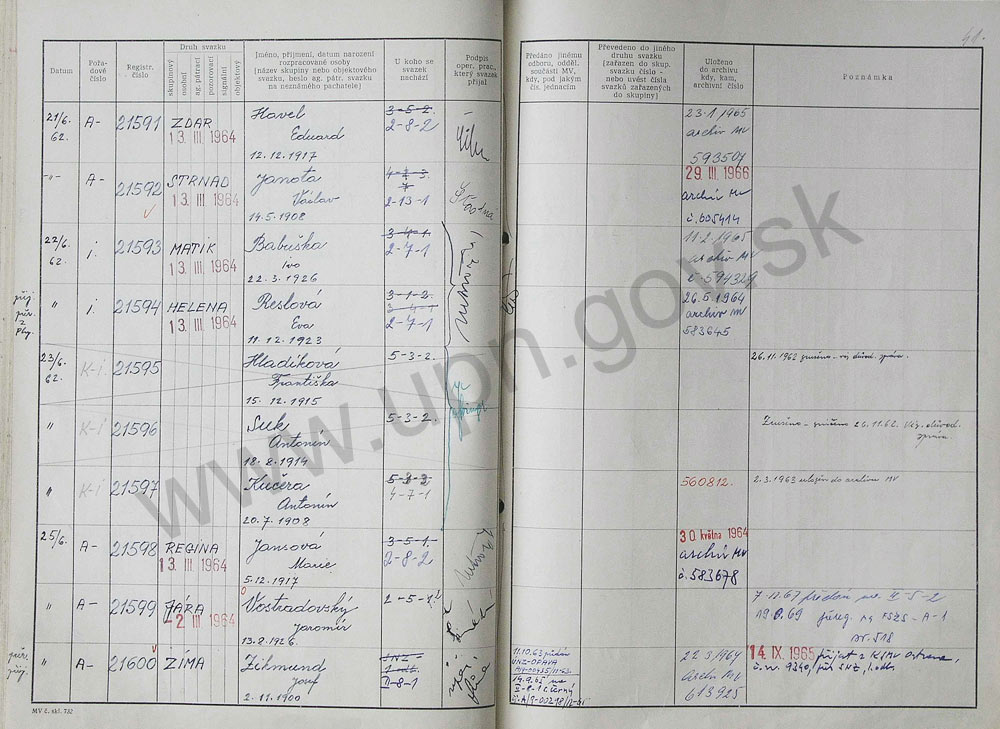 41.
Datum
Pořa-
dové
číslo
Registr.
číslo
Druh svazku
skupinový
osobní
ag. pátrací
pozorovací
signální
objektový
Jméno, příjmení, datum narození
rozpracované osoby
[název skupiny nebo objektového
svazku, beslo ag. pátr. svazku
na neznámého pachatele]
U koho se
svazek
nachází
Podpis
oper. prac.,
který svazek
přijal
Předáno jinému
odboru, odděl.
součásti MV,
kdy, pod jakým
čís. jednacím
Převedeno do jiného
druhu svazku
[zařazen do skup.
svazku číslo -
nebo uvést čísla
svazků zařazených
do skupiny]
Uloženo
do archivu
kdy, kam,
archivní číslo
Poznámka
21/6.
62.
A-
21591
ZDAR
13. III 1964
Havel
Eduard
12.12.1917
3-5-2.
2-8-2
23.1.1965
archiv MV
593507
-"-
A-
21592
STRNAD
13. III 1964
Janota
Václav
14.5.1908
4-3-3.
2-13-1
29. III 1966
archiv MV
č.605414
22/6.
62.
i.
21593
MATIK
13. III 1964
Babuška
Ivo
22.3.1926
3-4-1.
2-7-1
11.2.1965
archiv MV
č-594329
"
i.
21594
HELENA
13. III 1964
Reslová
Eva
11.12.1923
3-1-2.
3-4-1
2-7-1
26.5.1964
archiv MV
583645
23/6.
62.
K-i.
21595
Hladíková
Františka
15.12.1915
5-3-2.
26.11.1962 zrušeno - viz důvod. zpráva.
"
K-i
21596
Suk
Antonín
18.8.1914
5-3-2.
Zrušeno - zničeno 26.11.62. Viz. důvod.
zpráva.
"
K-i
21597
Kučera
Antonín
20.7.1908
5-3-3
4-7-1
560812.
2.3.1963 uložen do archivu MV
25/6.
A-
21598
REGINA
13. III 1964
Jansová
Marie
5.12.1917
3-5-1.
2-8-2
30. května 1964
archiv MV
č.583678
"
A-
21599
JÁRA
12. III 1964
Vostradovský
Jaromír
13.8.1926.
2-5-1.
A-1
"
A-
21600
ZIMA
Zikmund
Josef
2.11.1900
SNZ
1.odb.
II-8-1
11.10.63 předán
ÚNZ-OPAVA
14.9.65
Archiv MV
613925
14 IX. 1965
přijat z KSMV Ostrava,
MV č. skl. 732
www.upn.gov.sk